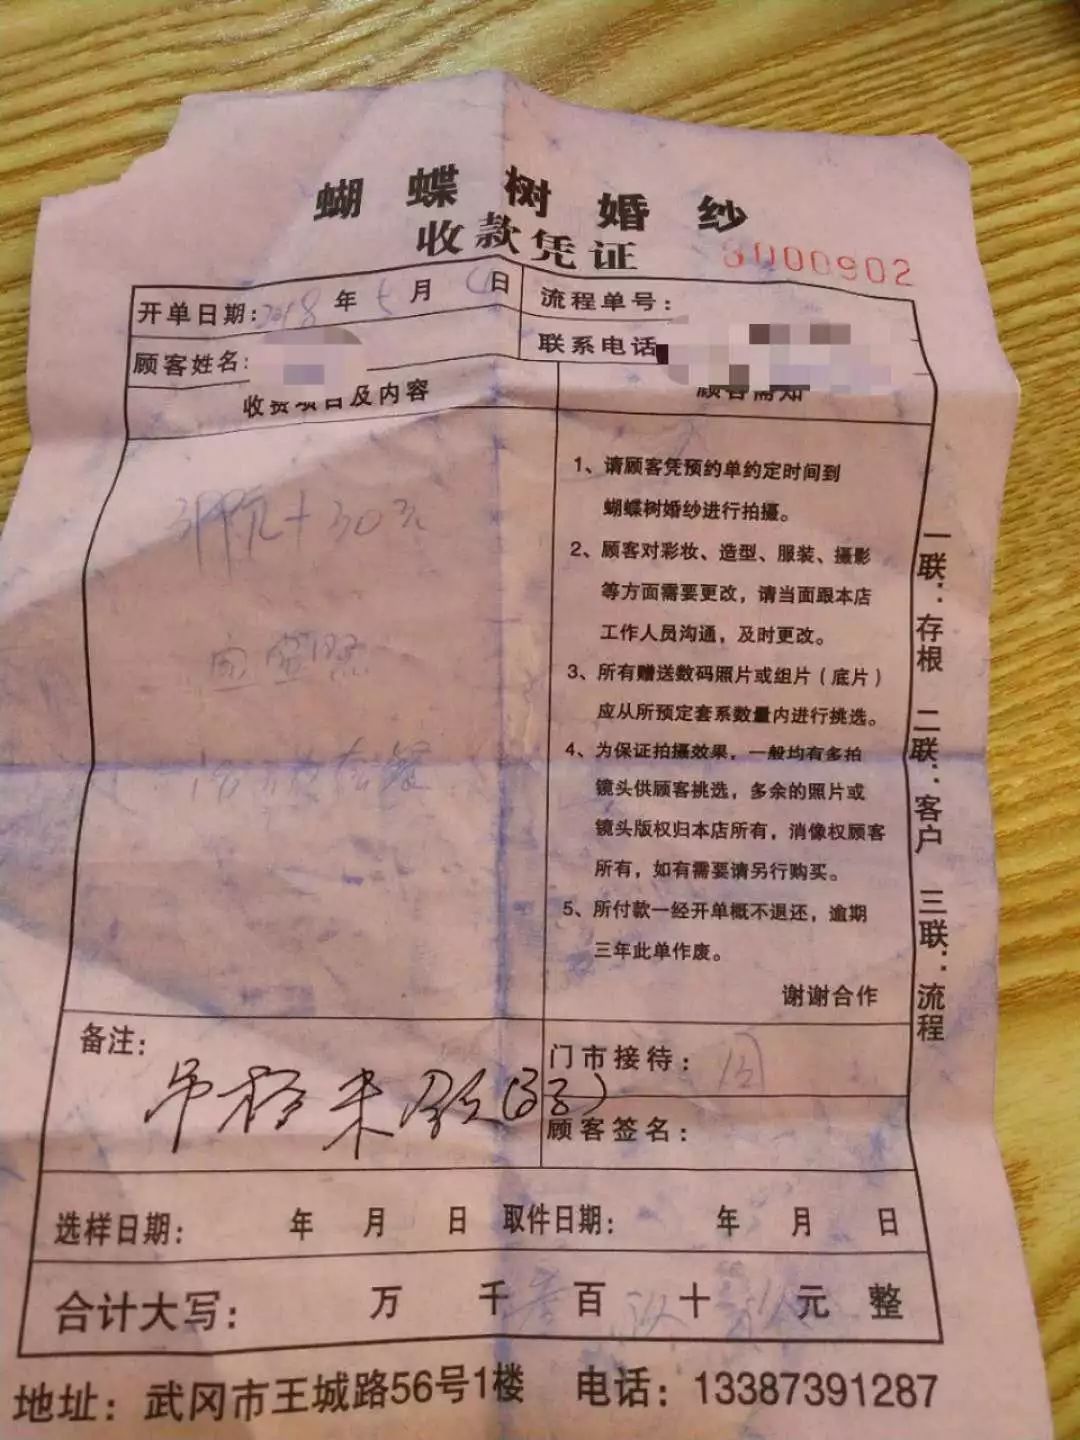 蝴蝶树婚纱
收款凭证
3000902
开单日期：2018年 月 日
流程单号：
顾客姓名：
联系电话
收费项目及内容
顾客需知
+30元
1、请顾客凭预约单约定时间到
蝴蝶树婚纱进行拍摄。
2、顾客对彩妆、造型、服装、摄影
等方面需要更改，请当面跟本店
工作人员沟通，及时更改。
3、所有赠送数码照片或组片（底片）
应从所预定套系数量内进行挑选。
4、为保证拍摄效果，一般均有多拍
镜头供顾客挑选，多余的照片或
镜头版权归本店所有，消像权顾客
所有，如有需要请另行购买。
5、所付款一经开单概不退还，逾期
三年此单作废。
谢谢合作
一联：存根 二联：客户 三联：流程
备注：
门市接待：
顾客签名：
选样日期： 年 月 日 取件日期： 年 月 日
合计大写： 万 千 百 十 元 整
地址：武冈市王城路56号1楼 电话：13387391287